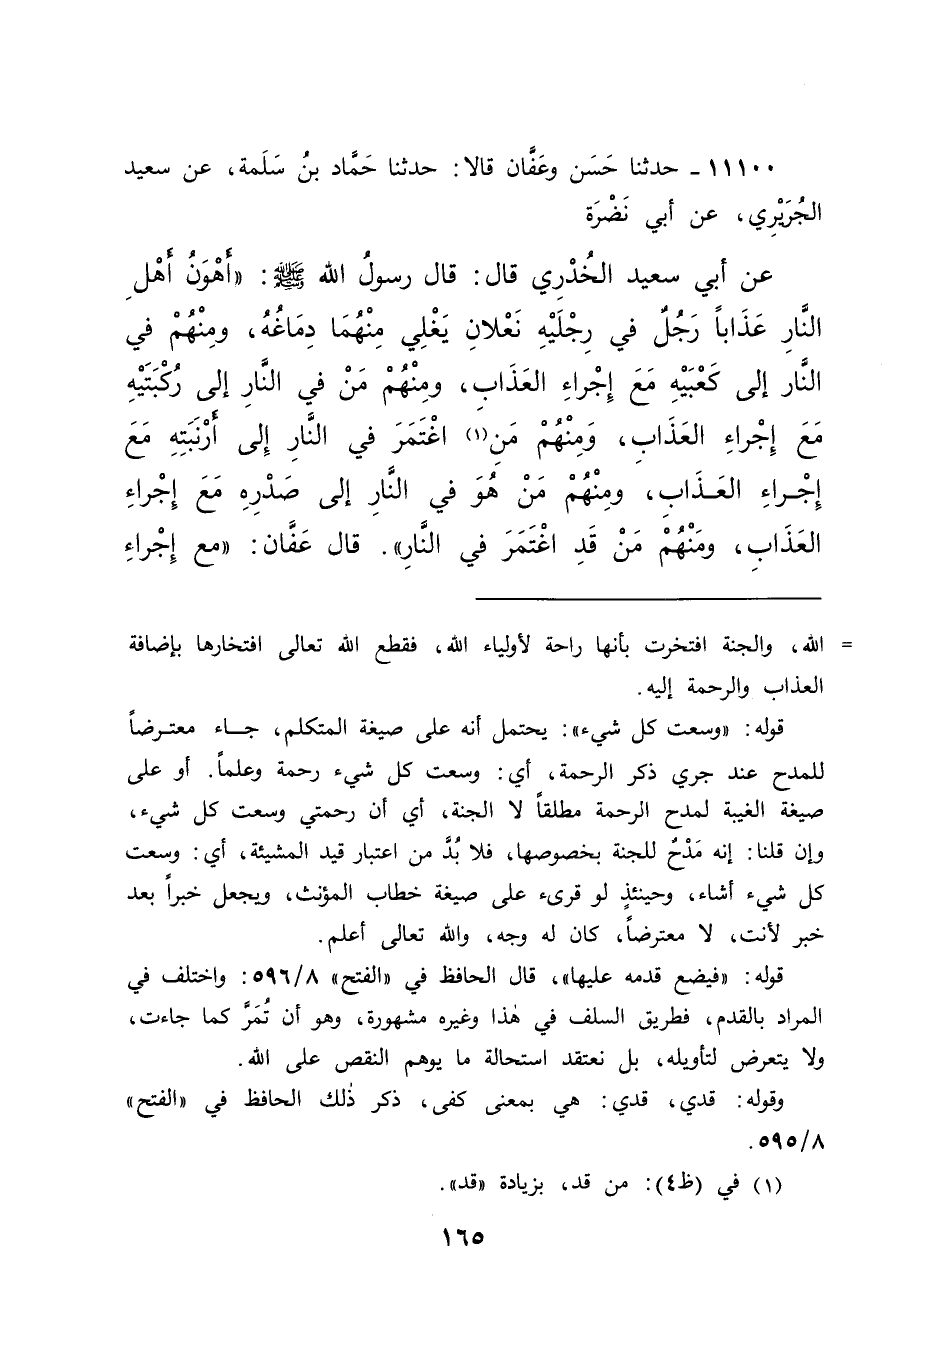 ١١١٠٠ - حدثنا حَسَن وعَفَّان قالا: حدثنا حَمَّاد بنُ سَلَمة، عن سعيد
الجُرَيْرِي، عن أبي نَضْرَة
عن أبي سعيد الخُدْرِي قال: قال رسولُ الله ﷺ: «أَهْوَنُ أَهْلِ
النَّارِ عَذَاباً رَجُلٌ في رِجْلَيْهِ نَعْلانِ يَغْلِي مِنْهُمَا دِمَاغُهُ، ومِنْهُمْ في
النَّار إلى كَعْبَيْهِ مَعَ إِجْراءِ العَذَابِ، ومِنْهُمْ مَنْ في النَّار إلى رُكْبَتَيْهِ
مَعَ إِجْراءِ العَذَابِ، وَمِنْهُمْ مَنِ(١) اغْتَمَرَ في النَّار إِلى أَرْنَبَتِهِ مَعَ
إِجْراءِ العَذَابِ، ومِنْهُمْ مَنْ هُوَ في النَّار إلى صَدْرِهِ مَعَ إِجْراءِ
العَذَابِ، ومَنْهُمْ مَنْ قَدِ اغْتَمَرَ في النَّارِ». قال عَفَّان: «مع إِجْراءِ
= الله، والجنة افتخرت بأنها راحة لأولياء الله، فقطع الله تعالى افتخارها بإضافة
العذاب والرحمة إليه.
قوله: «وسعت كل شيء»: يحتمل أنه على صيغة المتكلم، جاء معترضاً
للمدح عند جري ذكر الرحمة، أي: وسعت كل شيء رحمة وعلماً. أو على
صيغة الغيبة لمدح الرحمة مطلقاً لا الجنة، أي أن رحمتي وسعت كل شيء،
وإن قلنا: إنه مَدْحٌ للجنة بخصوصها، فلا بُدَّ من اعتبار قيد المشيئة، أي: وسعت
كل شيء أشاء، وحينئذٍ لو قرىء على صيغة خطاب المؤنث، ويجعل خبراً بعد
خبر لأنت، لا معترضاً، كان له وجه، والله تعالى أعلم.
قوله: «فيضع قدمه عليها»، قال الحافظ في «الفتح» ٥٩٦/٨: واختلف في
المراد بالقدم، فطريق السلف في هٰذا وغيره مشهورة، وهو أن تُمَرَّ كما جاءت،
ولا يتعرض لتأويله، بل نعتقد استحالة ما يوهم النقص على الله.
وقوله: قدي، قدي: هي بمعنى كفى، ذكر ذٰلك الحافظ في «الفتح»
٥٩٥/٨.
(١) في (ظ٤): من قد، بزيادة «قد».
١٦٥